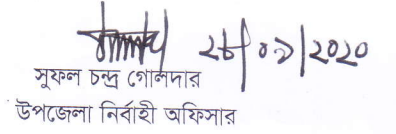 ২৮/০৯/2020
সুফল চন্দ্র গোলদার
উপজেলা নির্বাহী অফিসার